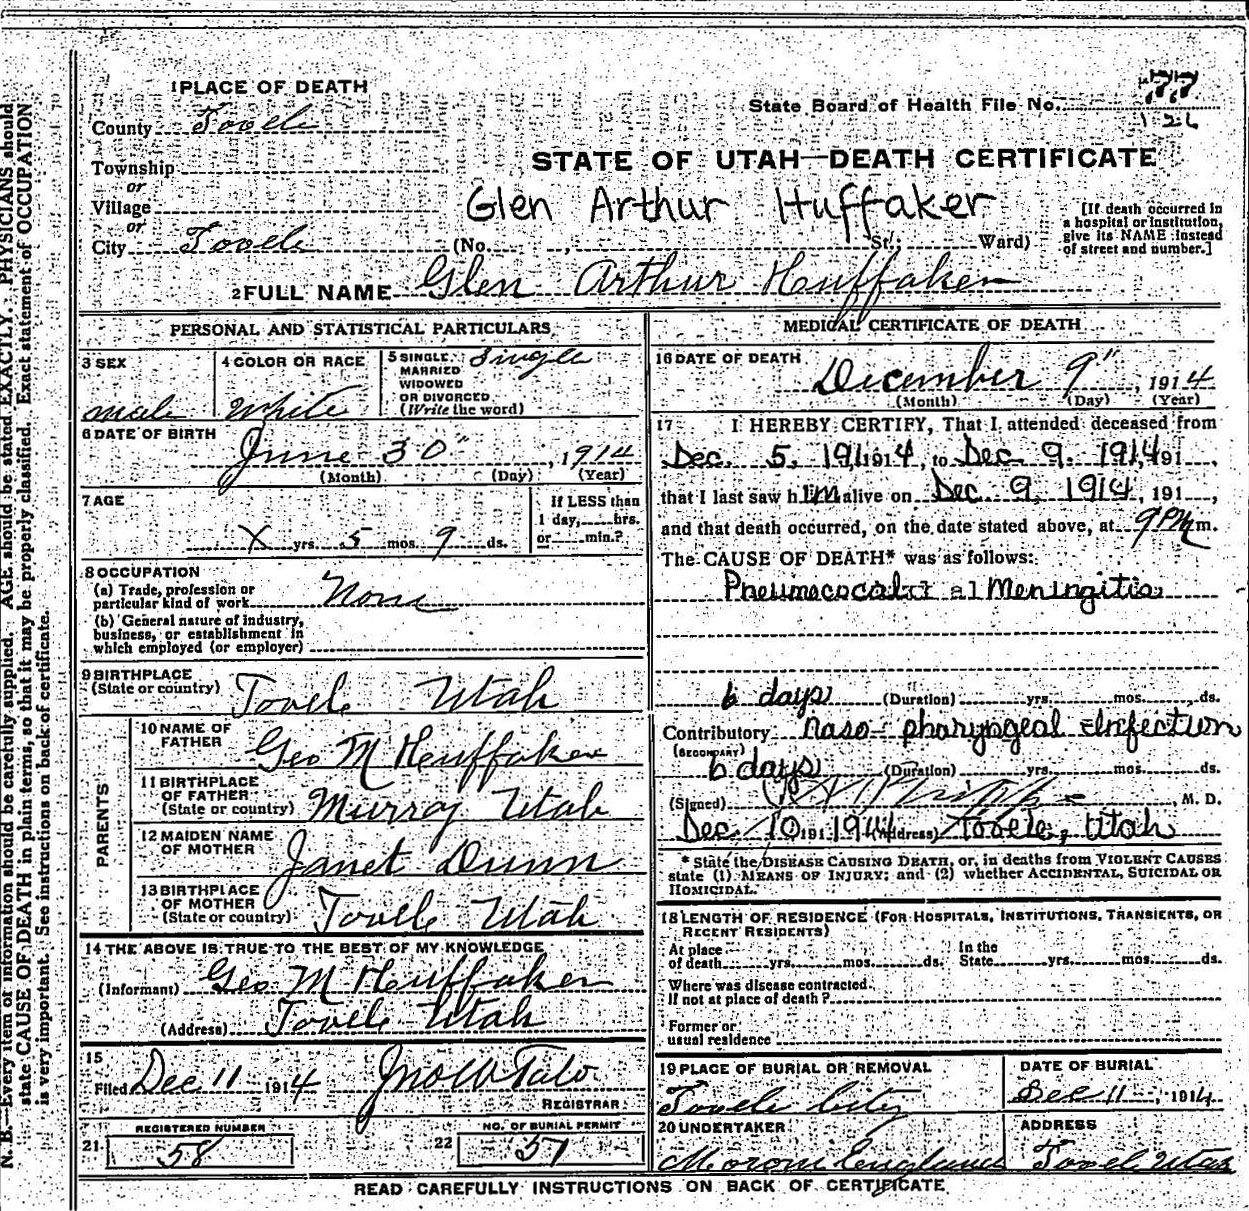 1 PLACE OF DEATH
County Tooele
Township
or
Village
or
City Tooele
State Board of Health File No. 777
126
STATE OF UTAH—DEATH CERTIFICATE
Glen Arthur Huffaker
(No. , St., Ward)
[If death occurred in
a hospital or institution,
give its NAME instead
of street and number.]
2 FULL NAME Glen Arthur Huffaker
PERSONAL AND STATISTICAL PARTICULARS
3 SEX
male
4 COLOR OR RACE
White
5 SINGLE,
MARRIED
WIDOWED
OR DIVORCED
(Write the word)
Single
6 DATE OF BIRTH
June 30", 1914
(Month) (Day) (Year)
7 AGE
X yrs. 5 mos. 9 ds.
If LESS than
1 day, hrs.
or min.?
8 OCCUPATION
(a) Trade, profession or
particular kind of work None
(b) General nature of industry,
business, or establishment in
which employed (or employer)
9 BIRTHPLACE
(State or country) Tooele Utah
PARENTS
10 NAME OF
FATHER Geo M Huffaker
11 BIRTHPLACE
OF FATHER
(State or country) Murray Utah
12 MAIDEN NAME
OF MOTHER Janet Dunn
13 BIRTHPLACE
OF MOTHER
(State or country) Tooele Utah
14 THE ABOVE IS TRUE TO THE BEST OF MY KNOWLEDGE
(Informant) Geo M Huffaker
(Address) Tooele Utah
15
Filed Dec 11 1914
REGISTRAR
REGISTERED NUMBER
21 58
NO. OF BURIAL PERMIT
22 57
MEDICAL CERTIFICATE OF DEATH
16 DATE OF DEATH
December 9", 1914
(Month) (Day) (Year)
17 I HEREBY CERTIFY, That I attended deceased from
Dec. 5, 1914, 1914, to Dec. 9. 1914, 191,
that I last saw him alive on Dec 9, 1914, 191,
and that death occurred, on the date stated above, at 9 PM m.
The CAUSE OF DEATH* was as follows:
Meningitis
6 days (Duration) yrs. mos. ds.
Contributory Naso-pharyngeal Infection
(SECONDARY)
6 days (Duration) yrs. mos. ds.
(Signed) , M. D.
Dec. 10 191 1914 (Address) Tooele, Utah
* State the DISEASE CAUSING DEATH, or, in deaths from VIOLENT CAUSES
state (1) MEANS OF INJURY; and (2) whether ACCIDENTAL, SUICIDAL OR
HOMICIDAL.
18 LENGTH OF RESIDENCE (FOR HOSPITALS, INSTITUTIONS, TRANSIENTS, OR
RECENT RESIDENTS)
At place
of death yrs. mos. ds.
In the
State yrs. mos. ds.
Where was disease contracted.
If not at place of death?
Former or
usual residence
19 PLACE OF BURIAL OR REMOVAL
Tooele City
DATE OF BURIAL
Dec 11, 1914
20 UNDERTAKER
Moroni England
ADDRESS
Tooele Utah
READ CAREFULLY INSTRUCTIONS ON BACK OF CERTIFICATE
N. B.—Every item of information should be carefully supplied. AGE should be stated EXACTLY. PHYSICIANS should
state CAUSE OF DEATH in plain terms, so that it may be properly classified. Exact statement of OCCUPATION
is very important. See instructions on back of certificate.